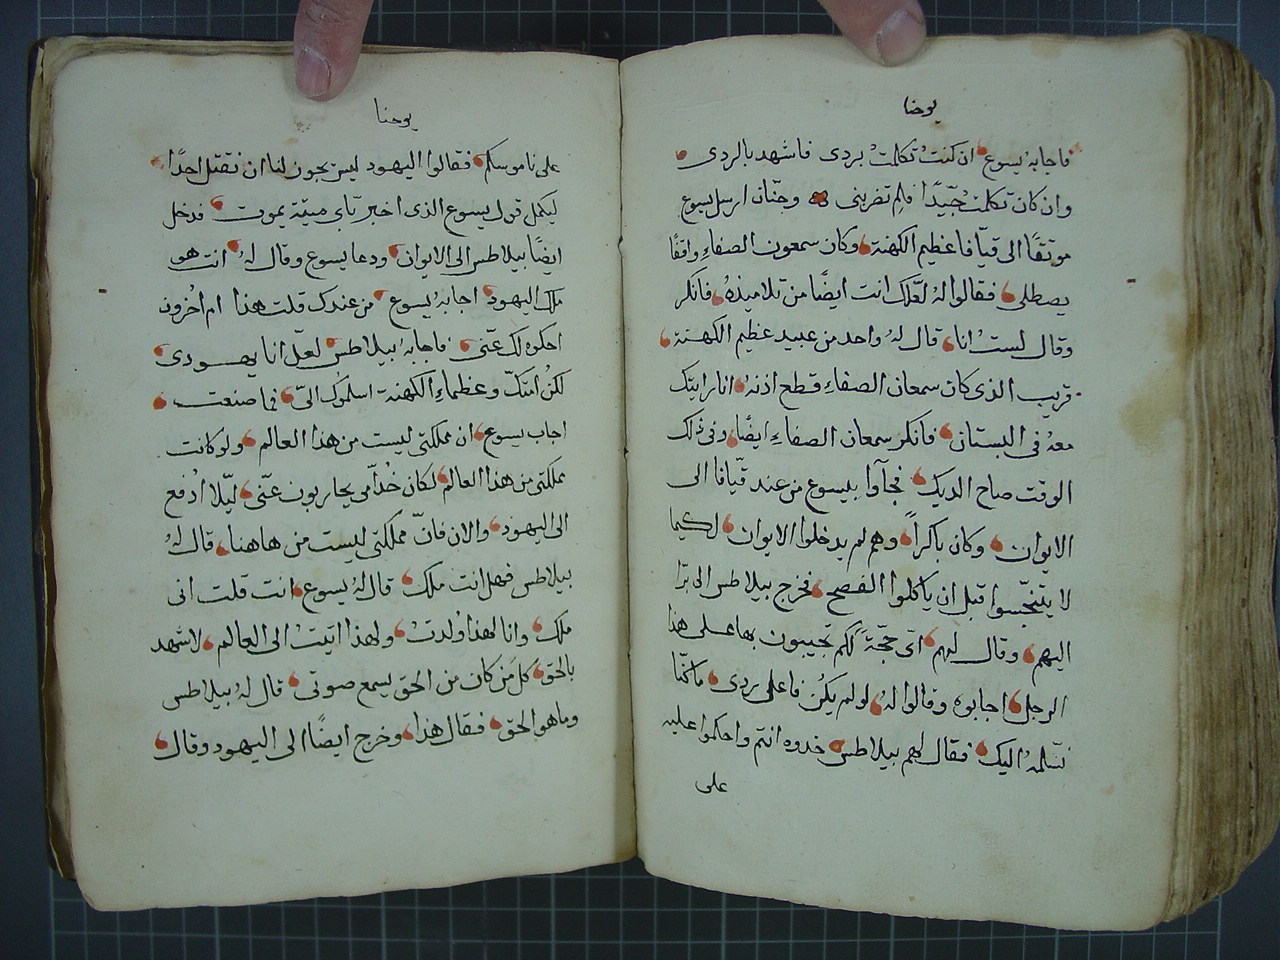 يوحنا
فاجابه يسوع ان كنتُ تكلمتُ بردى فاشهد بالردى
وان كان تكلمت جُيّدًا فلِم تضربنى وحنّان ارسل يسوع
موثقًا الى قيّافا عظيم الكهنة وكان سمعون الصفاءِ واقفًا
يصطلى فقالوا لهُ لعّلك انت ايضًا من تلاميذهُ فانكر
وقال لستُ انا قال لهُ واحد من عبيد عظيم الكهنة
قريب الذى كان سمعان الصفاءِ قطع اذنهُ انا رايتك
معهُ فى البستان فانكر سمعان الصفاءِ ايضًا وفى ذلك
الوقت صاح الديك فجآوا بيسوع من عند قيّافا الى
الايوان وكان باكرًا وهم لم يدخلوا الايوان لكيما
لا يتنجّسوا قبل ان ياكلوا الفصح فخرج بيلاطس الى برّا
اليهم وقال لهم اىّ حجّةً لكم تجيبون بها على هذا
الرجل اجابوه وقالوا لهُ لو لم يكُن فاعل ردى ما كنّا
نسّلمهُ اليك فقال لهم بيلاطس خدوه انتم واحكموا عليه
على
يوحنا
على ناموسكم فقالوا اليهود ليس يجوز لنا ان نقتل احدًا
ليكمل قول يسوع الذى اخبر بّاى ميتة يموت فدخل
ايضًا بيلاطس الى الايوان ودعا يسوع وقال لهُ انت هو
ملك اليهود اجابهُ يسوع من عندك قلت هذا ام اُخرون
احكوه لك عنّى فاجابهُ بيلاطس لعلّ انا يهودى
لكنُ امتكّ وعظماءِ الكهنة اسلموُك الىّ فما صنعت
اجاب يسوع ان مملكتى ليست من هذا العالم ولو كانت
مملكتى من هذا العالم لكان خُدّامى يحاربون عنّى ليّلا ادُفع
الى اليهود والان فانّ مملكتى ليست من هاهنا قال لهُ
بيلاطس فهل انت ملك قال لهُ يسوع انت قلت انى
ملك وانا لهذا وُلدتُ ولهذا اتيتُ الى العالم لاشهد
بالحق كل مَن كان من الحق يسمع صوتى قال لهُ بيلاطس
وما هو الحق فقال هذا وخرج ايضًا الى اليهود وقال